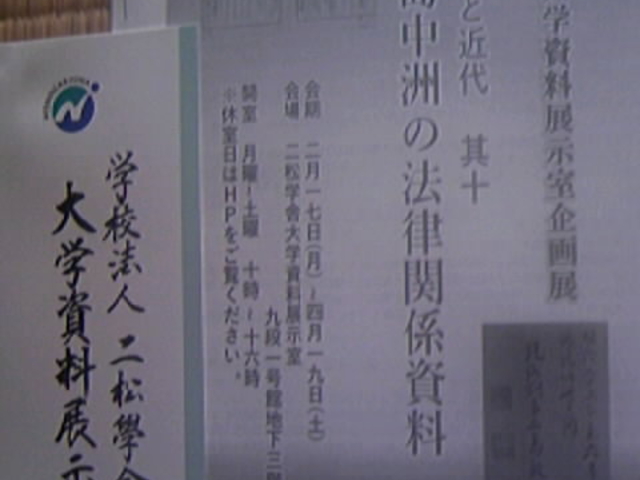 学資料展示室企画展
と近代 其十
中洲の法律関係資料
会期 二月一七日(月)~四月一九日(土)
会場 二松学舎大学資料展示室
九段一号館地下三階
開室 月曜~土曜 十時~十六時
※休室日はHPをご覧ください。
学校法人 二松學舍
大学資料展示